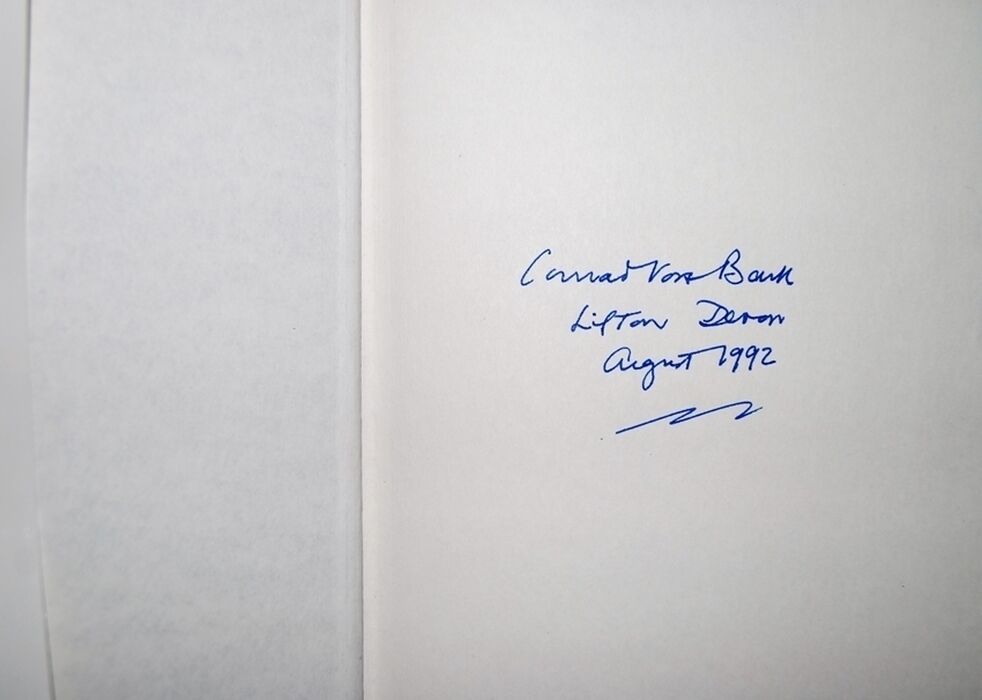 Conrad Voss Bark
Lifton Devon
August 1992